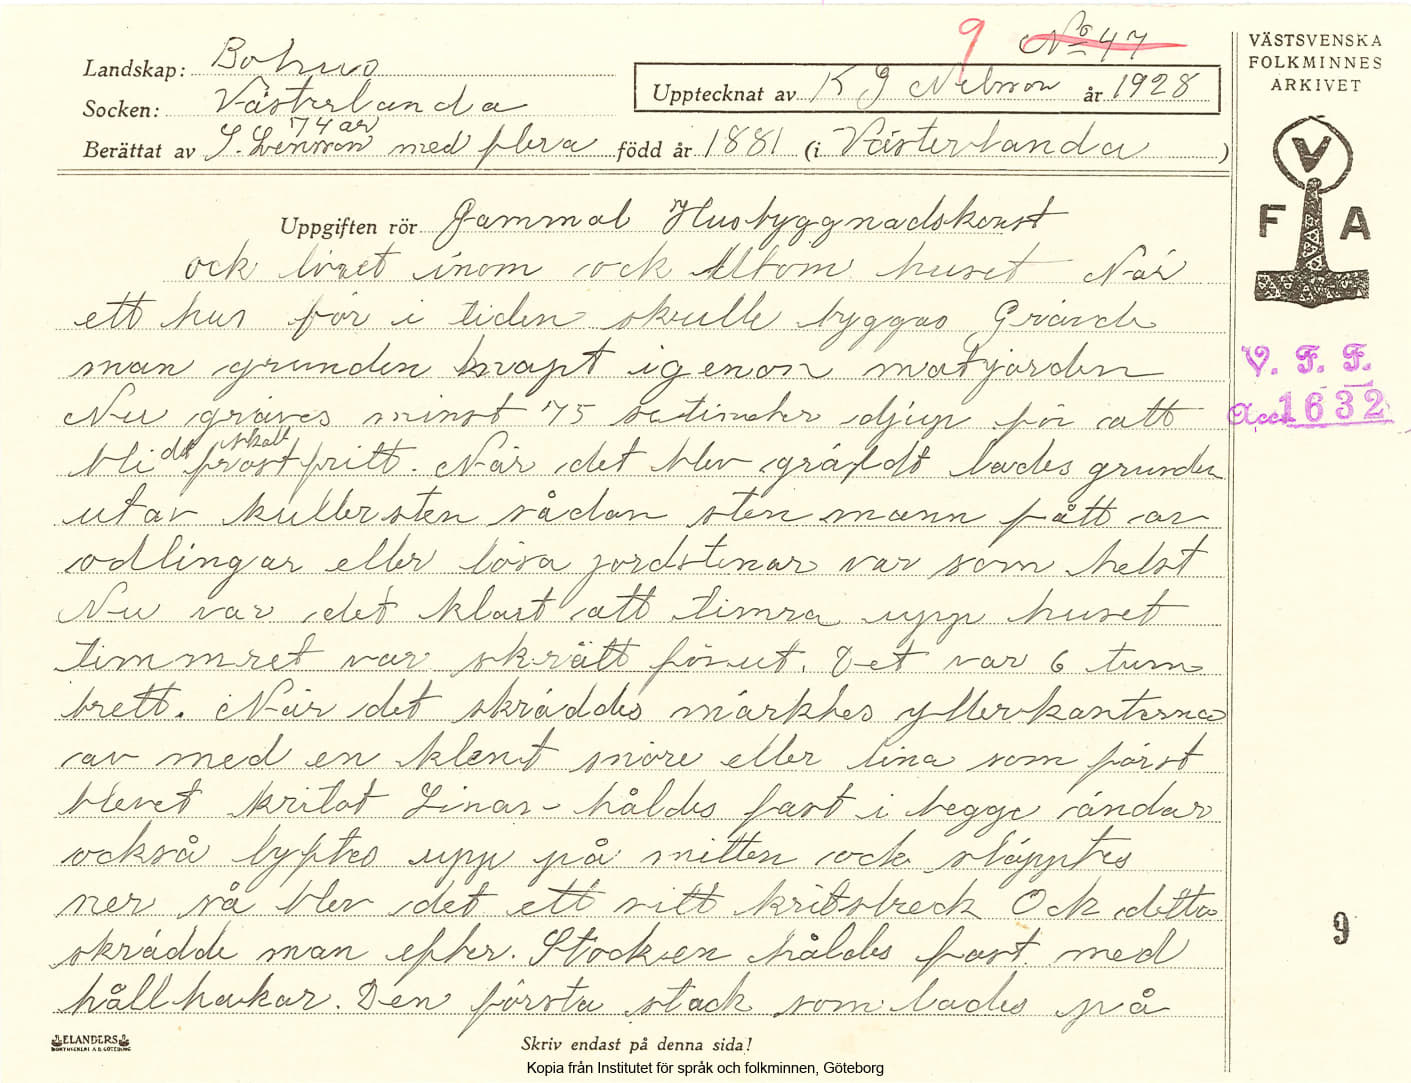 9 No 47
Landskap: Bohus
Socken: Västerlanda
Upptecknat av K G Nelsson år 1928
74 år
Berättat av S. Svensson med flera född år 1881 (i Västerlanda)
VÄSTSVENSKA
FOLKMINNES
ARKIVET
V
F A
V. F. F.
Acc. 1632
9
Uppgiften rör Gammal Husbyggnadskonst
ock livet inom ock utom huset När
ett hus för i tiden skulle byggas Grävde
man grunden knapt igenon matjorden
Nu gräves minst 75 setimeter djup för att
det skall
bli frostfritt. När det blev gräfdt lades grunden
utav kullersten sådan sten mann fått av
odlingar eller lösa jordstenar var som helst
Nu var det klart att timra upp huset
timmret var skrätt förut. Det var 6 tum
brett. När det skräddes märktes ytterkanterna
av med en klent snöre eller lina som först
blevet kritat Linan håldes fast i begge ändar
också lyftes upp på mitten ock släpptes
ner så blev det ett vitt kritstreck Ock detta
skrädde man efter. Stocken håldes fast med
hållhakar. Den första stock som lades på
ELANDERS
BOKTRYCKERI A.B. GÖTEBORG
Skriv endast på denna sida!
Kopia från Institutet för språk och folkminnen, Göteborg